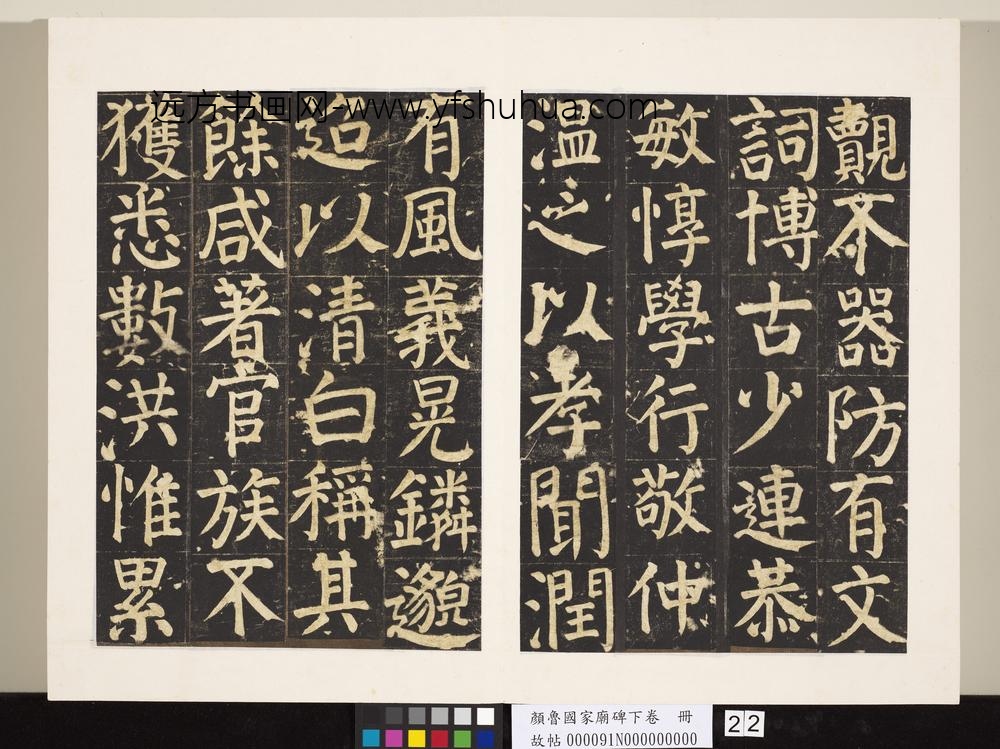 覿不器防有文
詞博古少連恭
敏惇學行敬仲
溫之以孝聞潤
有風義晃鏻邈
迢以清白稱其
餘咸著官族不
獲悉數洪惟累
远方书画网-www.yfshuhua.com
顏魯國家廟碑下卷 冊
故帖 000091N000000000
22